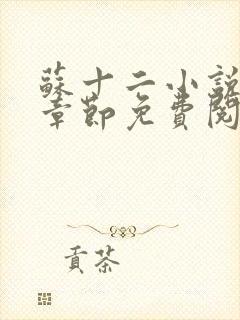 蘇十二小說
章節免費閱
貢茶